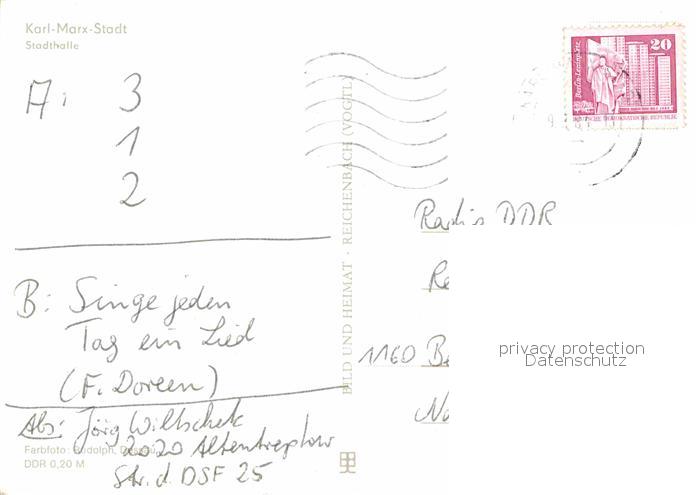 Karl-Marx-Stadt
Stadthalle
A: 3
1
2
B: Singe jeden
Tag ein Lied
(F. Doreen)
Abs: Jörg Wiltschek
2020 Altentreptow
Str. d. DSF 25
Farbfoto: Rudolph, Dessau
DDR 0,20 M
BILD UND HEIMAT · REICHENBACH (VOGTL)
Berlin-Leninplatz
20
DEUTSCHE DEMOKRATISCHE REPUBLIK
Radio DDR
Re
1160 Be
privacy protection
Datenschutz